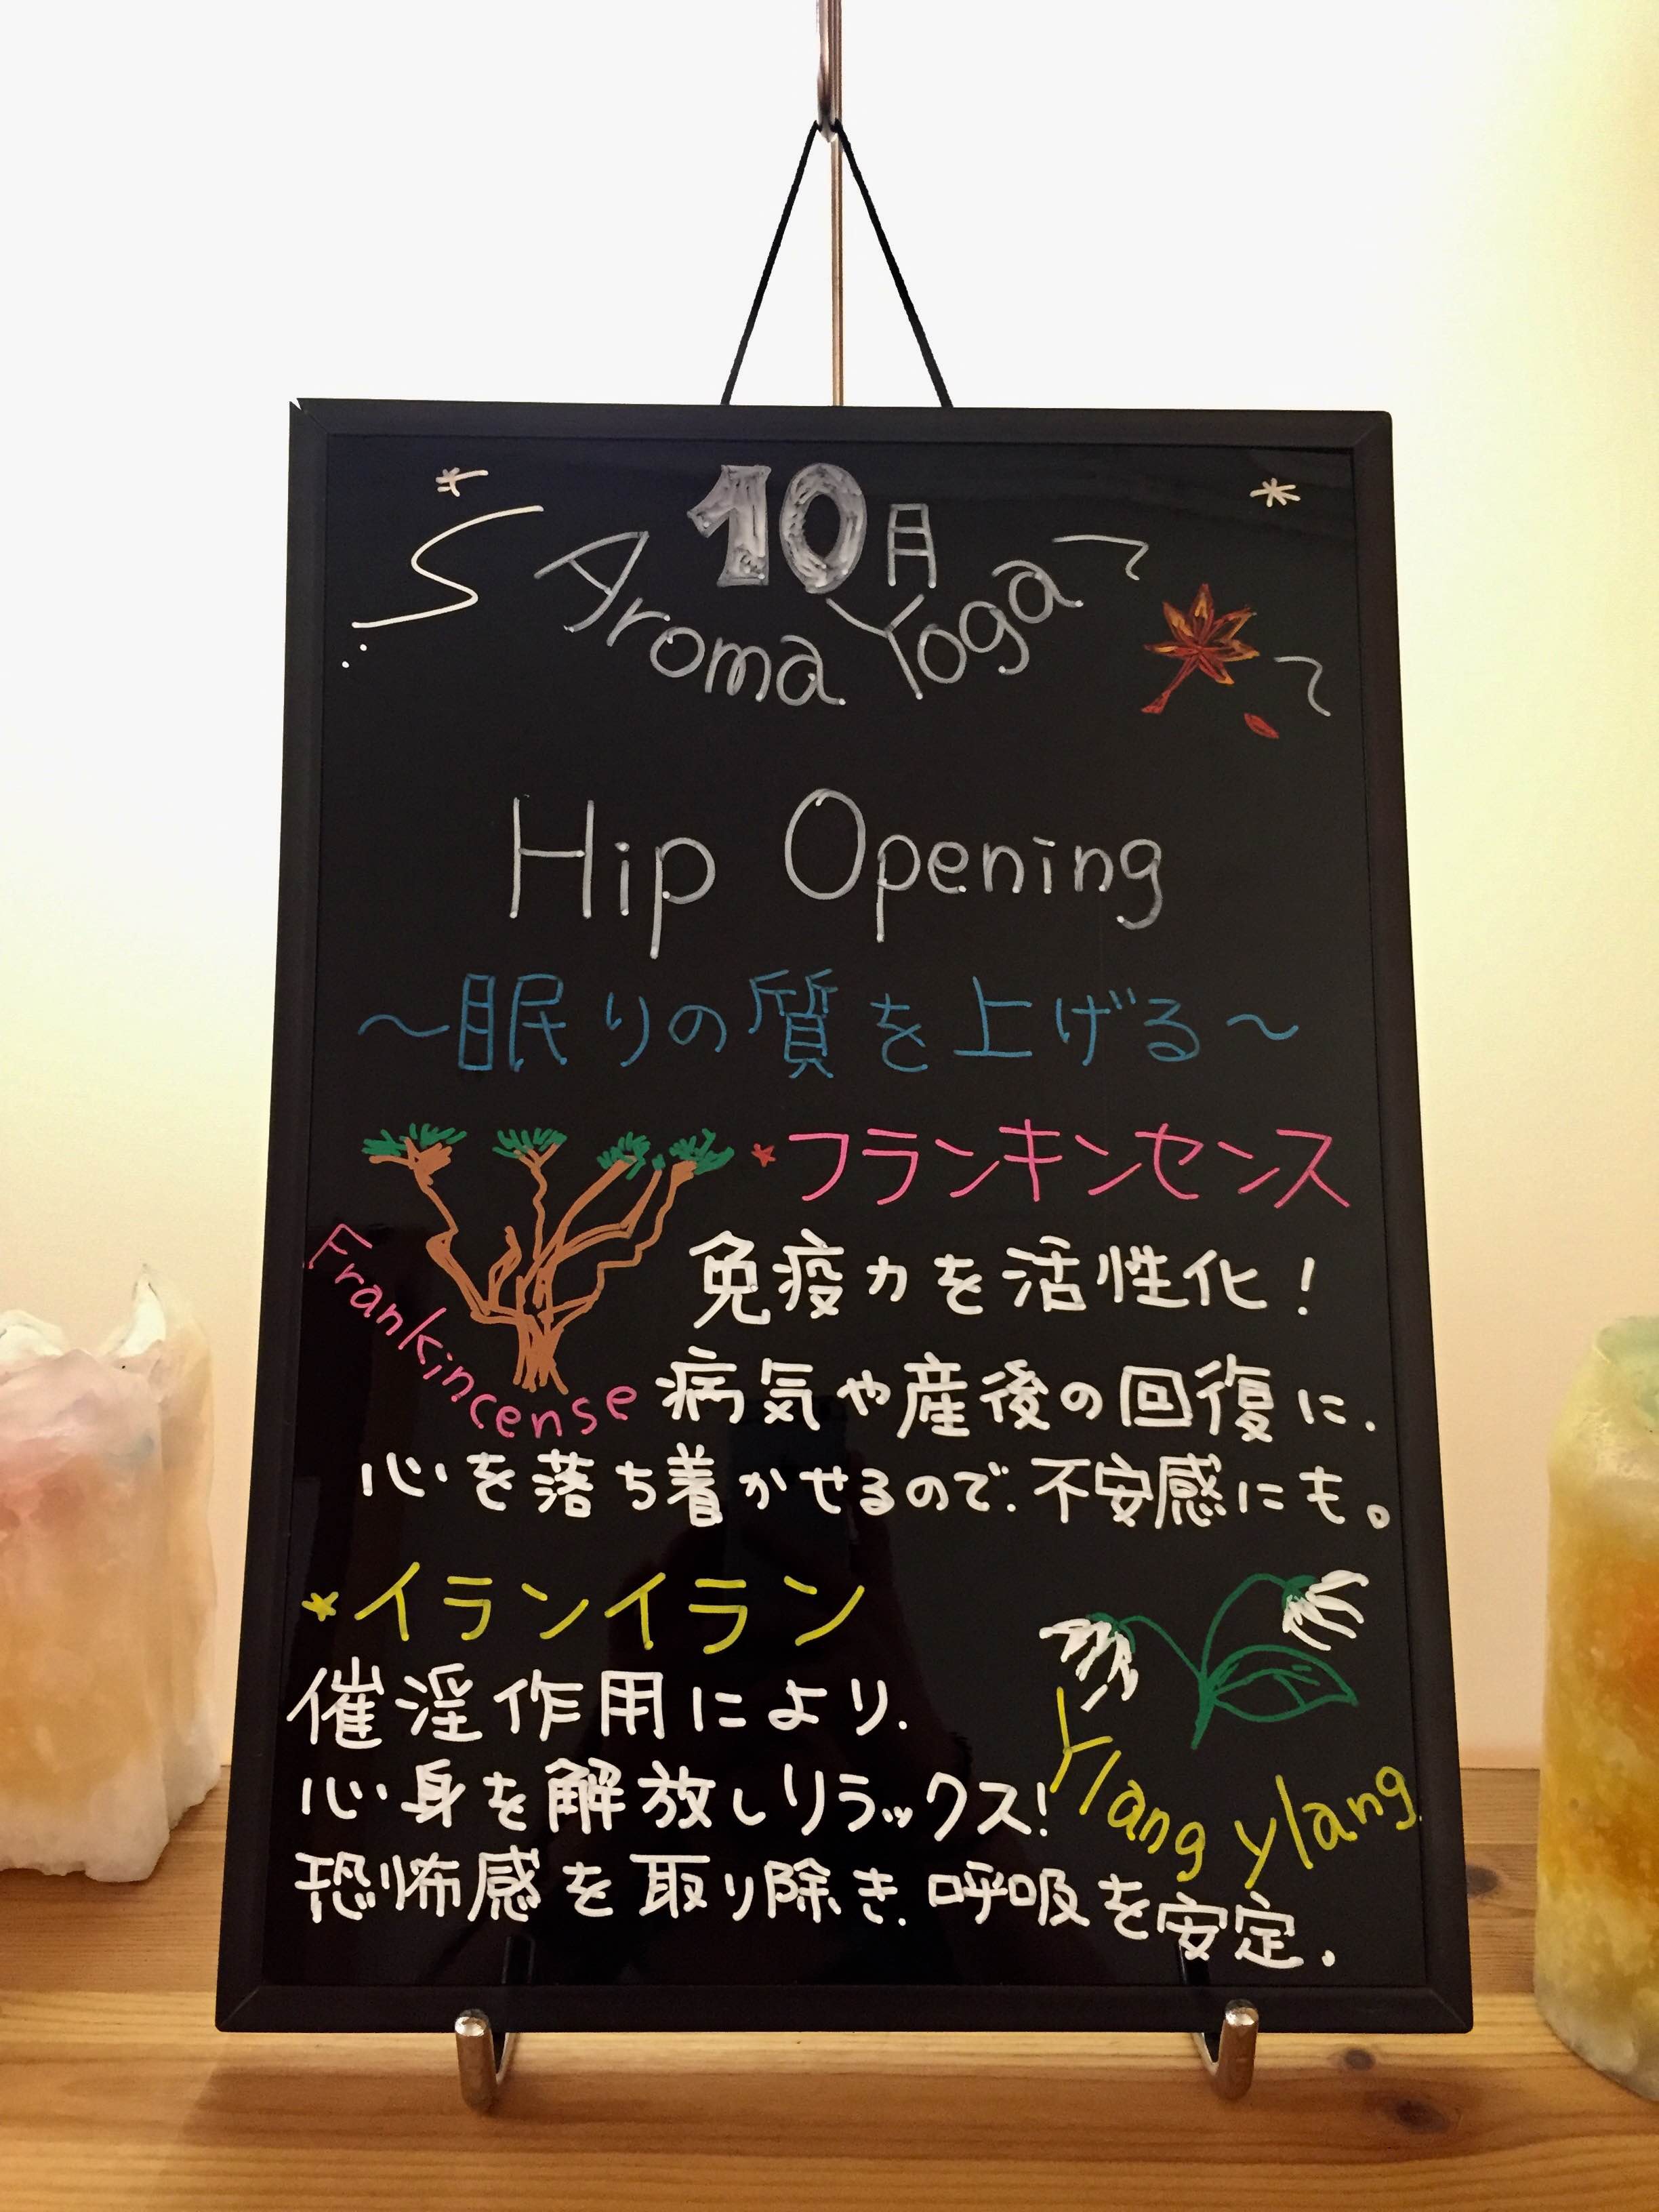 10月
Aroma Yoga
Hip Opening
～眠りの質を上げる～
フランキンセンス
Frankincense
免疫力を活性化！
病気や産後の回復に.
心を落ち着かせるので.不安感にも。
イランイラン
Ylang ylang
催淫作用により.
心身を解放しリラックス!
恐怖感を取り除き.呼吸を安定.